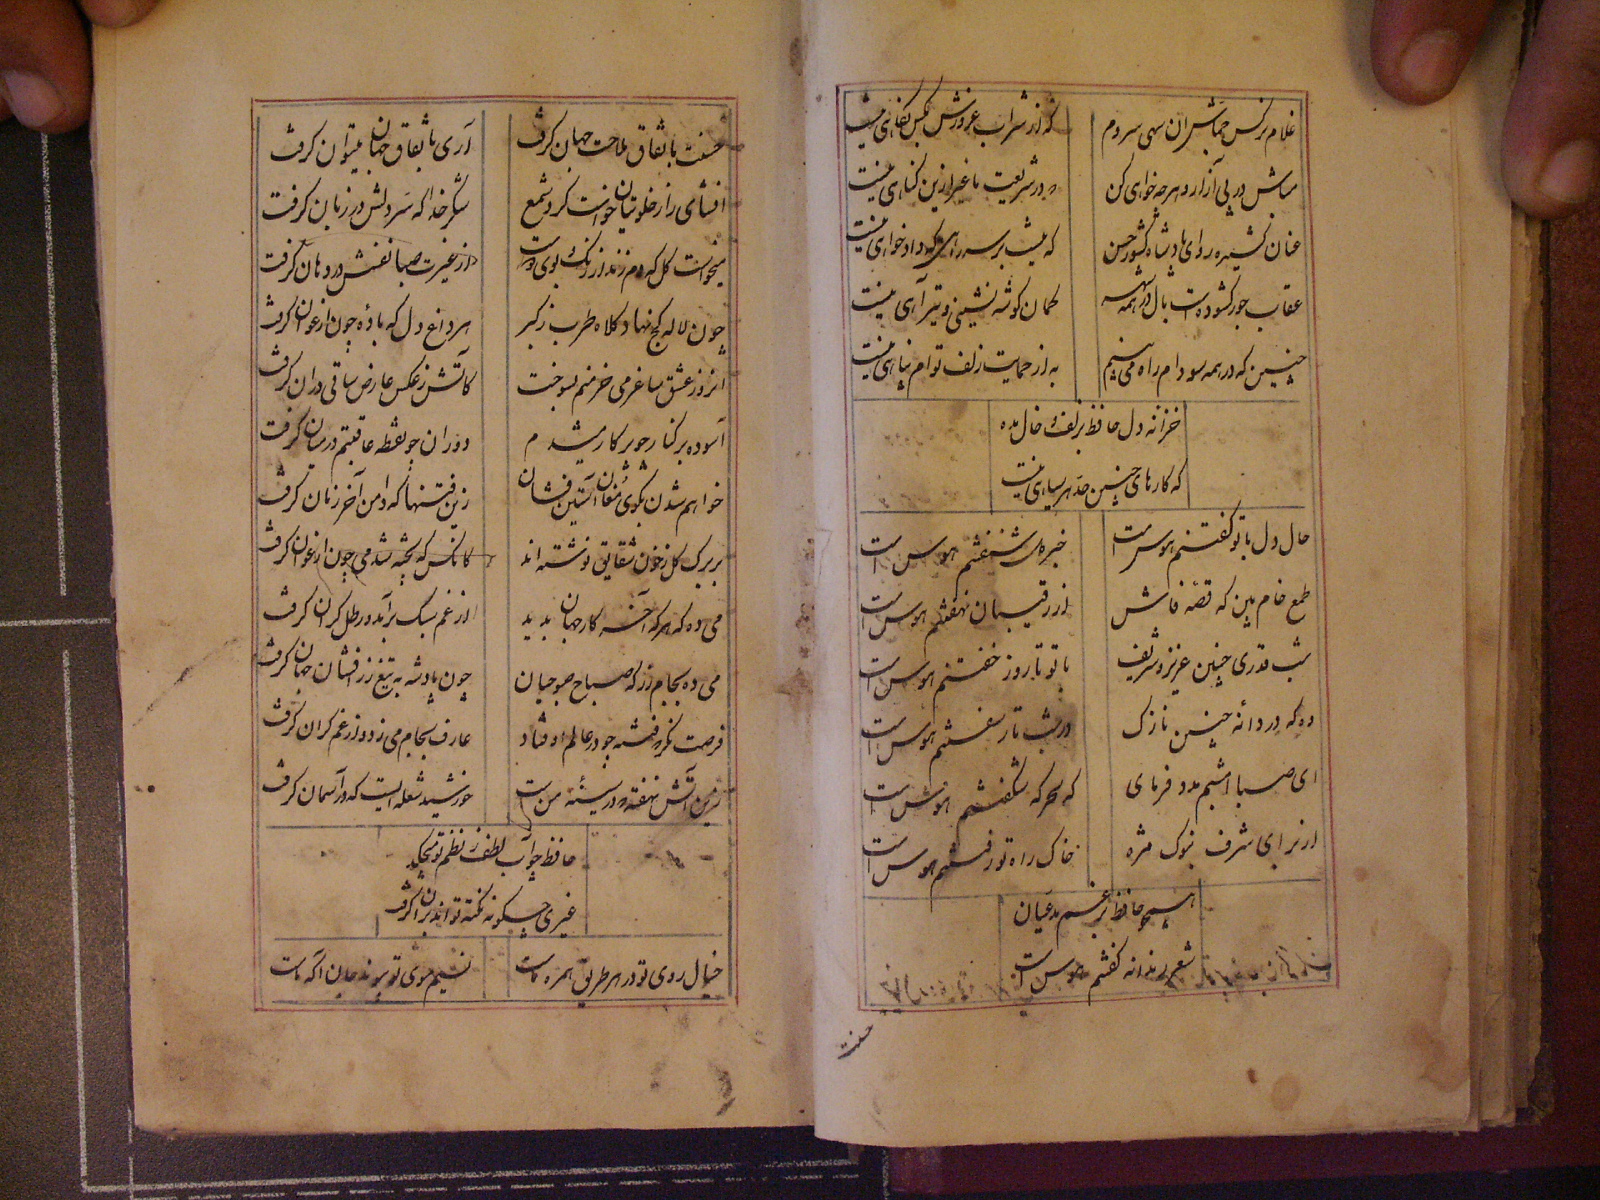 غلام نرگس جماش آن سهی سروم
که از شراب غرورش بکس نگاهی نیست
مباش در پی آزار و هرچه خواهی کن
که در شریعت ما غیر ازین گناهی نیست
عنان کشیده رو ای پادشاه کشور حسن
که نیست بر سر راهی که دادخواهی نیست
عقاب جور گشودست بال در همه شهر
کمان گوشه نشینی و تیر آهی نیست
چنین که در همه سو دام راه می بینم
به از حمایت زلف توام پناهی نیست
خزانه دل حافظ بزلف و خال مده
که کارهای چنین حد هر سیاهی نیست
حال دل با تو گفتنم هوس است
خبر دل شنفتنم هوس است
طمع خام بین که قصه فاش
از رقیبان نهفتنم هوس است
شب قدری چنین عزیز و شریف
با تو تا روز خفتنم هوس است
وه که دردانه چنین نازک
در شب تار سفتنم هوس است
ای صبا امشبم مدد فرمای
که سحرگه شکفتنم هوس است
از برای شرف بنوک مژه
خاک راه تو رفتنم هوس است
همچو حافظ برغم مدعیان
شعر رندانه گفتنم هوس است
حسنت
حسنت با تفاق ملاحت جهان گرفت
آری با تفاق جهان میتوان گرفت
افشای راز خلوتیان خواست کرد شمع
شکر خدا که سر دلش در زبان گرفت
میخواست گل که دم زند از رنگ و بوی دوست
از غیرت صبا نفسش در دهان گرفت
چون لاله کج نهاد کلاه طرب ز کبر
هر داغ دل که باده چون ارغوان گرفت
آنروز عشق ساغر می خرمنم بسوخت
کآتش ز عکس عارض ساقی دران گرفت
آسوده بر کنار چو پرکار میشدم
دوران چو نقطه عاقبتم در میان گرفت
خواهم شدن بکوی مغان آستین فشان
زین فتنها که دامن آخر زمان گرفت
بر برگ گل ز خون شقایق نوشته اند
کانکس که پخته شد می چون ارغوان گرفت
می ده که هر که آخر کار جهان بدید
از غم سبک برآمد و رطل گران گرفت
می ده بجام زر که صباح صبوحیان
چون پادشه به تیغ زر افشان جهان گرفت
فرصت نگر که فتنه چو در عالم اوفتاد
عارف بجام می زد و از غم کران گرفت
زین آتش نهفته که در سینه من است
خورشید شعله ایست که در آسمان گرفت
حافظ چو آب لطف ز نظم تو میچکد
غیری چگونه نکته تواند بران گرفت
خیال روی تو در هر طریق همره ماست
نسیم موی تو پیوند جان آگه ماست